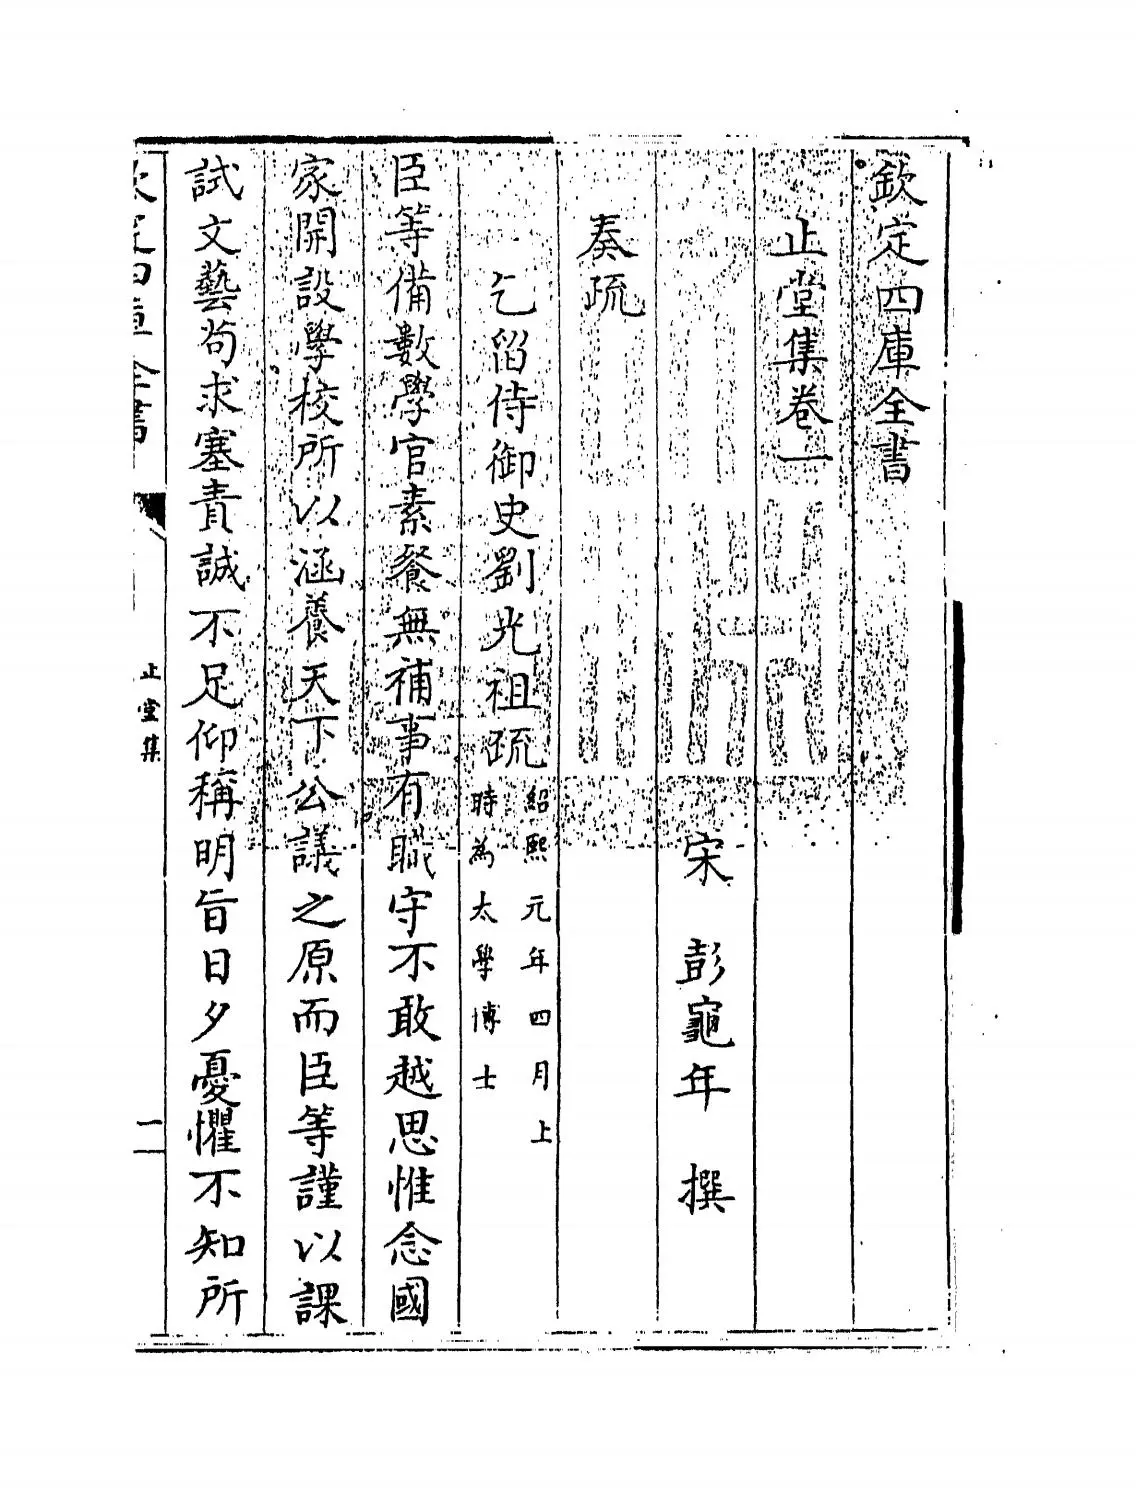 欽定四庫全書
止堂集卷一
宋 彭龜年 撰
奏疏
乞留侍御史劉光祖疏
紹熙元年四月上
時為太學博士
臣等備數學官素餐無補事有職守不敢越思惟念國
家開設學校所以涵養天下公議之原而臣等謹以課
試文藝苟求塞責誠不足仰稱明旨日夕憂懼不知所
欽定四庫全書
止堂集
一